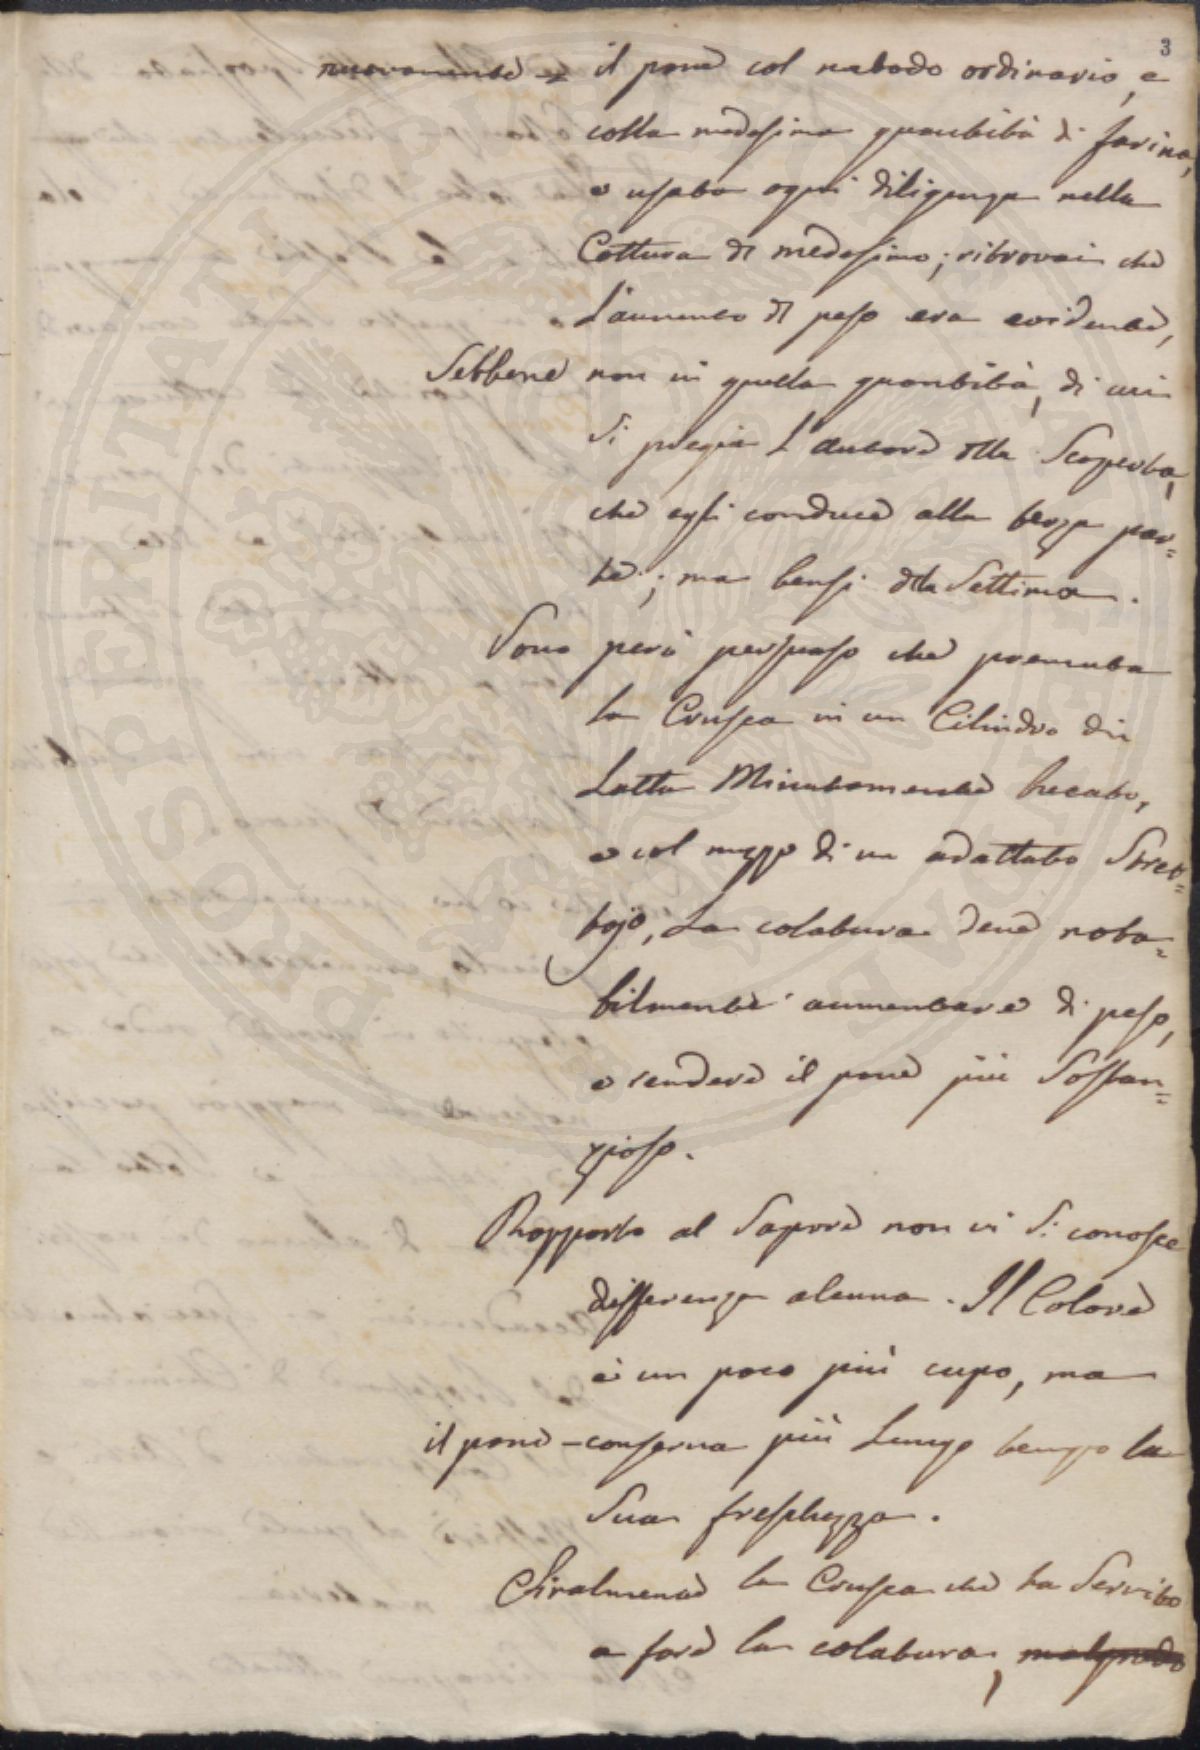 3
nuovamente il pane col metodo ordinario, e
colla medesima quantità di farina,
e usata ogni diligenza nella
Cottura del medesimo; ritrovai che
l'aumento del peso era evidente,
Sebbene non in quella quantità, di cui
si pregia l'autore della Scoperta,
che egli conduce alla terza par=
te; ma bensi della Settima.
Sono però persuaso che premuta
la Crusca in un Cilindro di
Latta Minutamente
e col mezzo di un adattato Stret=
tojo, La colatura deve nota=
bilmente aumentare di peso,
e rendere il pane più Sostan=
zioso.
Rapporto al Sapore non vi si conosce
differenza alcuna. Il Colore
è un poco più cupo, ma
il pane conserva più Lungo tempo la
Sua freschezza.
Finalmente la Crusca che ha Servito
a fare la colatura, malgrado